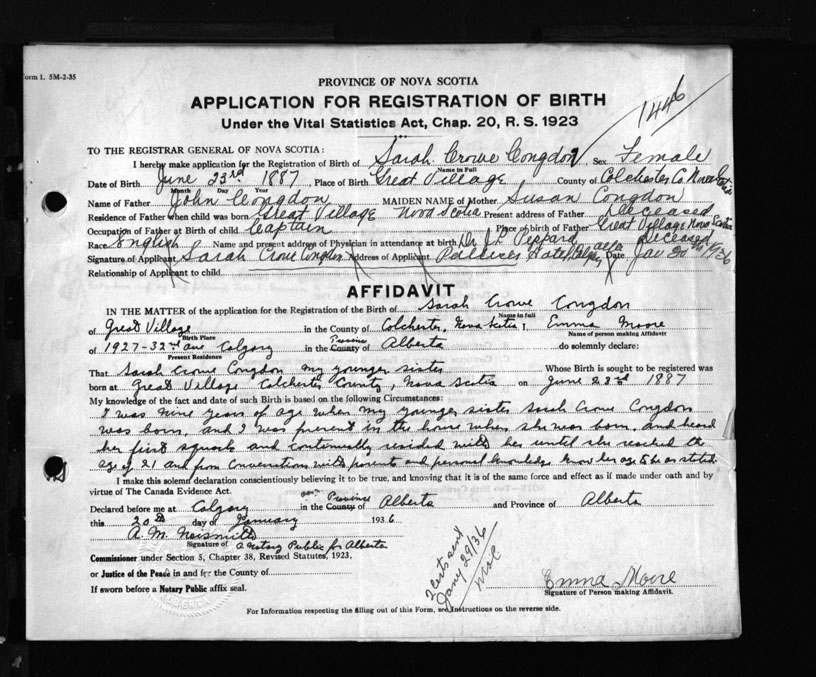 Form 1. 5M-2-35
PROVINCE OF NOVA SCOTIA
1446
APPLICATION FOR REGISTRATION OF BIRTH
Under the Vital Statistics Act, Chap. 20, R. S. 1923
TO THE REGISTRAR GENERAL OF NOVA SCOTIA:
I hereby make application for the Registration of Birth of Sarah Crowe Congdon Sex Female
Name in Full
Date of Birth June 23rd 1887, Place of Birth Great Village County of Colchester Co Nova Scotia
Month Day Year
Name of Father John Congdon MAIDEN NAME of Mother Susan Congdon
Residence of Father when child was born Great Village Nova Scotia Present address of Father Deceased
Occupation of Father at Birth of child Captain Place of birth of Father Great Village Nova Scotia
Race English Name and present address of Physician in attendance at birth Dr. J. L. Peppard Deceased
Signature of Applicant Sarah Crowe Congdon Address of Applicant Palliser Hotel Calgary Alta Date Jan 20th 1936
Relationship of Applicant to child
AFFIDAVIT
IN THE MATTER of the application for the Registration of Birth of Sarah Crowe Congdon
Name in Full
of Great Village in the County of Colchester, Nova Scotia I, Emma Moore
Birth Place Name of person making Affidavit
of 1927-32nd ave Calgary in the County of Province Alberta do solemnly declare:
Present Residence
That Sarah Crowe Congdon my younger sister Whose Birth is sought to be registered was
born at Great Village Colchester County, Nova Scotia on June 23rd 1887
My knowledge of the fact and date of such Birth is based on the following Circumstances:
I was nine years of age when my younger sister Sarah Crowe Congdon
was born, and I was present in the house when she was born, and heard
her first squawk and continually resided with her until she reached the
age of 21 and from conversations with parents and personal knowledge know her age to be as stated
I make this solemn declaration conscientiously believing it to be true, and knowing that it is of the same force and effect as if made under oath and by
virtue of The Canada Evidence Act.
Declared before me at Calgary in the County of Province Alberta and Province of Alberta
this 20th day of January 1936
A. M. Naismith
Signature of a Notary Public for Alberta
Commissioner under Section 5, Chapter 38, Revised Statutes, 1923,
or Justice of the Peace in and for the County of
If sworn before a Notary Public affix seal.
2 certs sent
Jany 29/36
Emma Moore
Signature of Person making Affidavit.
For Information respecting the filling out of this Form, see Instructions on the reverse side.